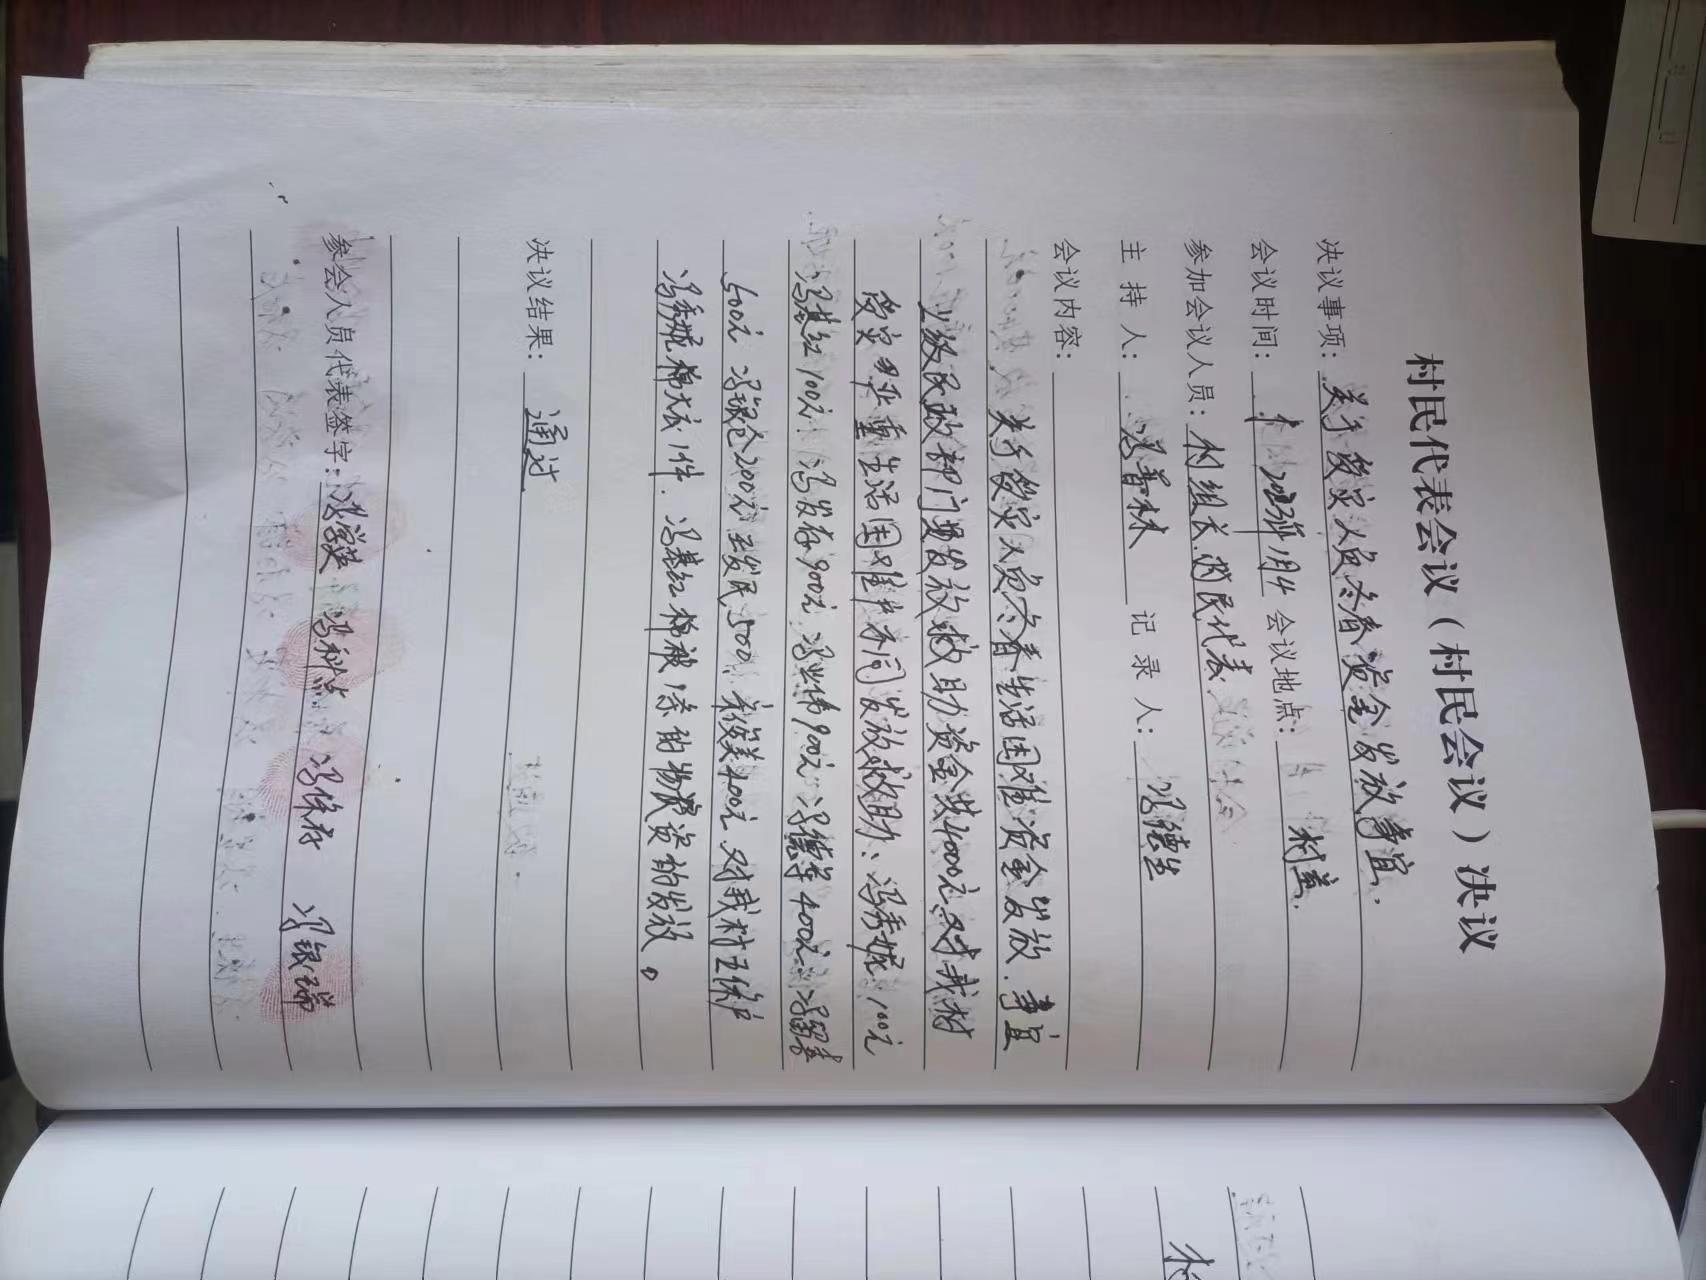 村民代表会议（村民会议）决议
决议事项：关于受灾人员冬春资金发放事宜.
会议时间： 会议地点：村室.
参加会议人员：村组长.村民代表
主持人：冯喜林 记录人：冯德出
会议内容：
关于受灾人员冬春生活困难资金发放.事宜
上级民政部门要发放救助资金共4000元.对我村
受灾严重生活困难户不同发放救助：冯秀妮100元
冯基红100元 冯发存900元 冯业伟900元 冯德军400元 冯留
500元 冯银仓200元 发民500 美400元 对我村五保户
冯秀妮棉大衣1件.冯基红棉被1条的物资的发放。
决议结果：通过
参会人员代表签字：冯学英 冯科点 冯保存 冯银瑞